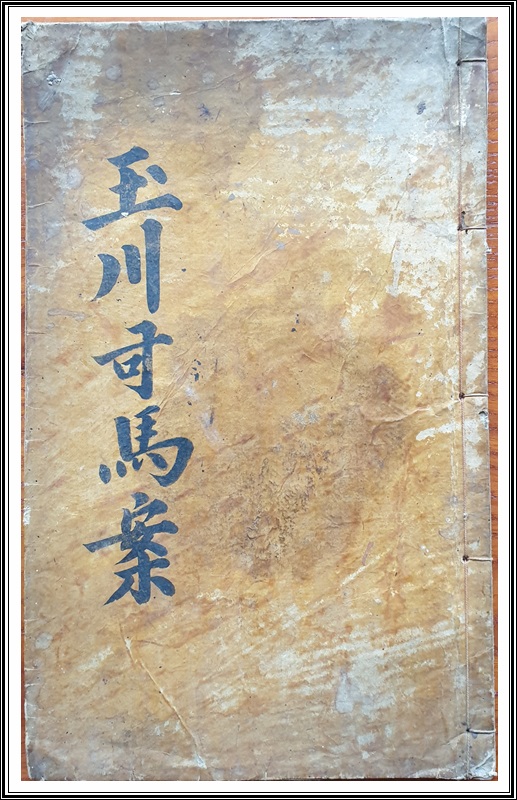 玉川司馬案